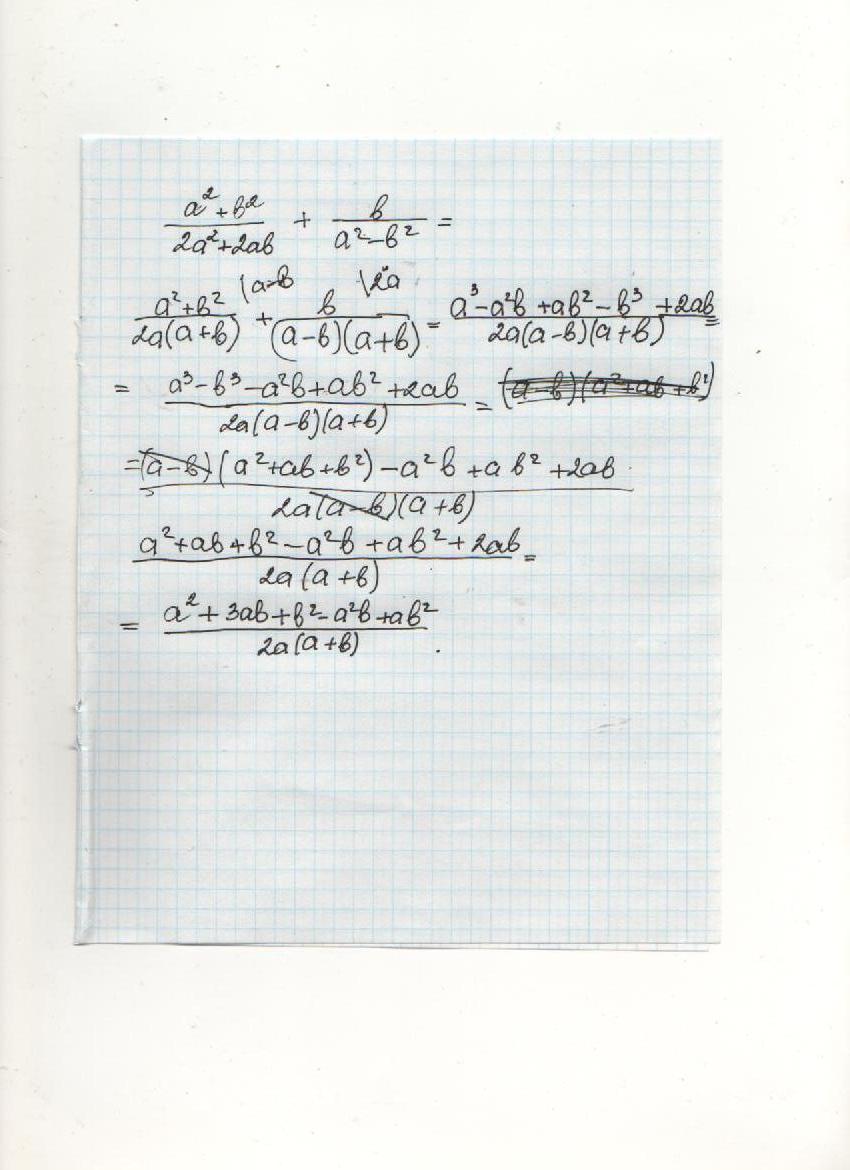 (a² + b²)/(2a² + 2ab) + b/(a² - b²) =
(a² + b²)/(2a(a + b)) \a-b + b/((a - b)(a + b)) \2a = (a³ - a²b + ab² - b³ + 2ab)/(2a(a - b)(a + b)) =
= (a³ - b³ - a²b + ab² + 2ab)/(2a(a - b)(a + b)) = (a - b)(a² + ab + b²)
= ((a - b)(a² + ab + b²) - a²b + ab² + 2ab)/(2a(a - b)(a + b))
(a² + ab + b² - a²b + ab² + 2ab)/(2a(a + b)) =
= (a² + 3ab + b² - a²b + ab²)/(2a(a + b)).